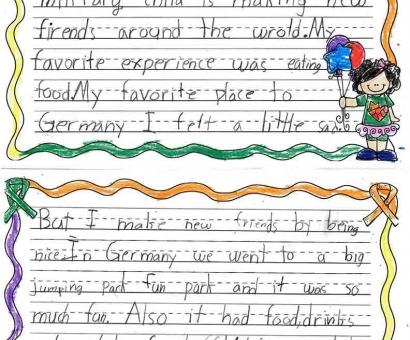 military child is making new
firends around the wrold.My
favorite experience was eating
food.My favorite place to
Germany I felt a little sad.
But I make new friends by being
nice.In Germany we went to a big
jumping park fun park and it was so
much fun. Also it had food,drinks